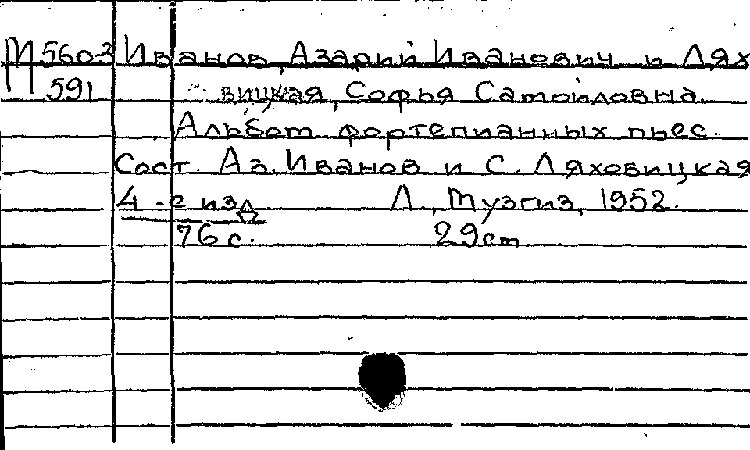 М 560-2 Иванов, Азарий Иванович и Лях
591 вицкая, Софья Самойловна.
Альбом фортепианных пьес.
Сост. Аз. Иванов и С. Ляховицкая
4-е изд Л., Музгиз, 1952.
76 с. 29 см